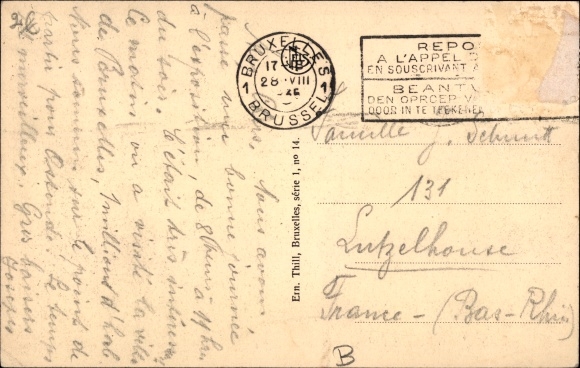 passé une bonne journée
à l'exposition de 8 heures à 11 hrs
du soir. C'était très intéressant
Ce matin on a visité la ville
de Bruxelles, 1 million d'hab.
Nous sommes sur le point de
partir pour Ostende. Le temps
est merveilleux. Gros baisers
Joseph
Ern. Thill, Bruxelles, série 1, no 14.
BRUXELLES
1 1
17
28 VIII
BRUSSEL
REPO
A L'APPEL
EN SOUSCRIVANT
BEANT
DEN OPROEP V
DOOR IN TE TEEKENE
Famille J. Schmitt
131
Lutzelhouse
France - (Bas-Rhin)
B